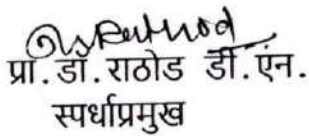 प्रा.डॉ.राठोड डी.एन.
स्पर्धाप्रमुख